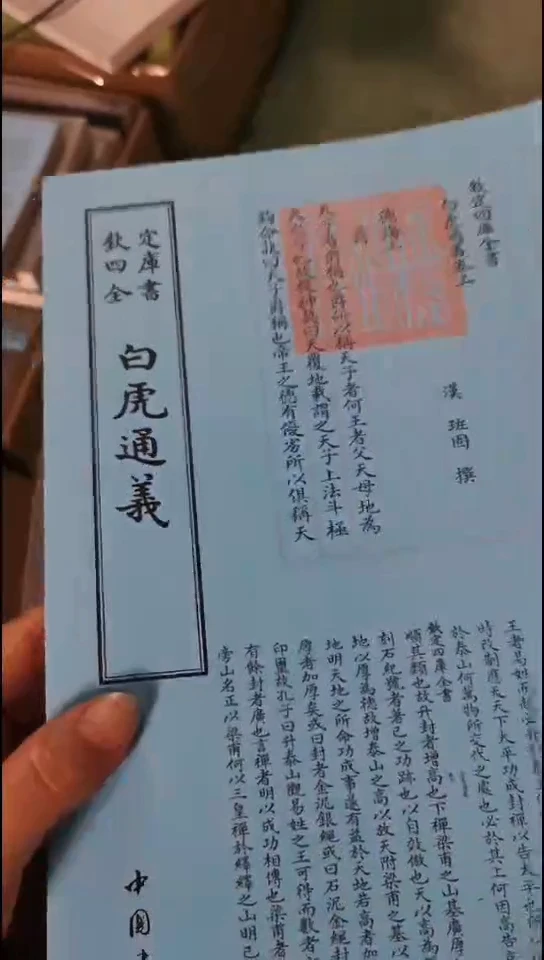 欽定四庫全書
白虎通義
欽定四庫全書
漢 班固 撰
天子者爵稱也爵所以稱天子者何王者父天母地為
天覆地載謂之天子上法斗極
天子爵稱也帝王之德有優劣所以俱稱天
王者易姓而起
時改制應天天下太平功成封禪以告太平也所以
於泰山何萬物所交代之處也必於其上何因高告高
欽定四庫全書
順其類也故升封者增高也下禪梁甫之山基廣厚
刻石紀號者著己之功跡也以自放傚也天以高為
地以厚為德故增泰山之高以放天附梁甫之基以
地明天地之所命功成事遂有益於天地若高者加
厚者加厚矣或曰封者金泥銀繩或曰石泥金繩封
印璽故孔子曰升泰山觀易姓之王可得而數者
有餘封者廣也言禪者明以成功相傳也梁甫者
旁山名正以梁甫何以三皇禪於繹繹之山明已
中國